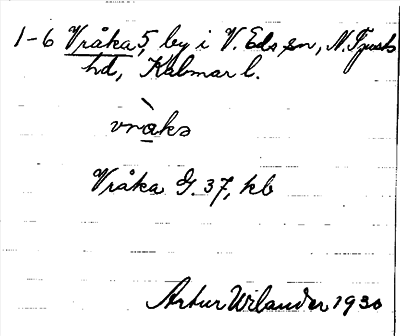 1-6 Vråka 5, by i V. Eds sn, N. Tjusts
hd, Kalmar l.
vràka
Vråka G. 37, kb
Artur Wilander 1930